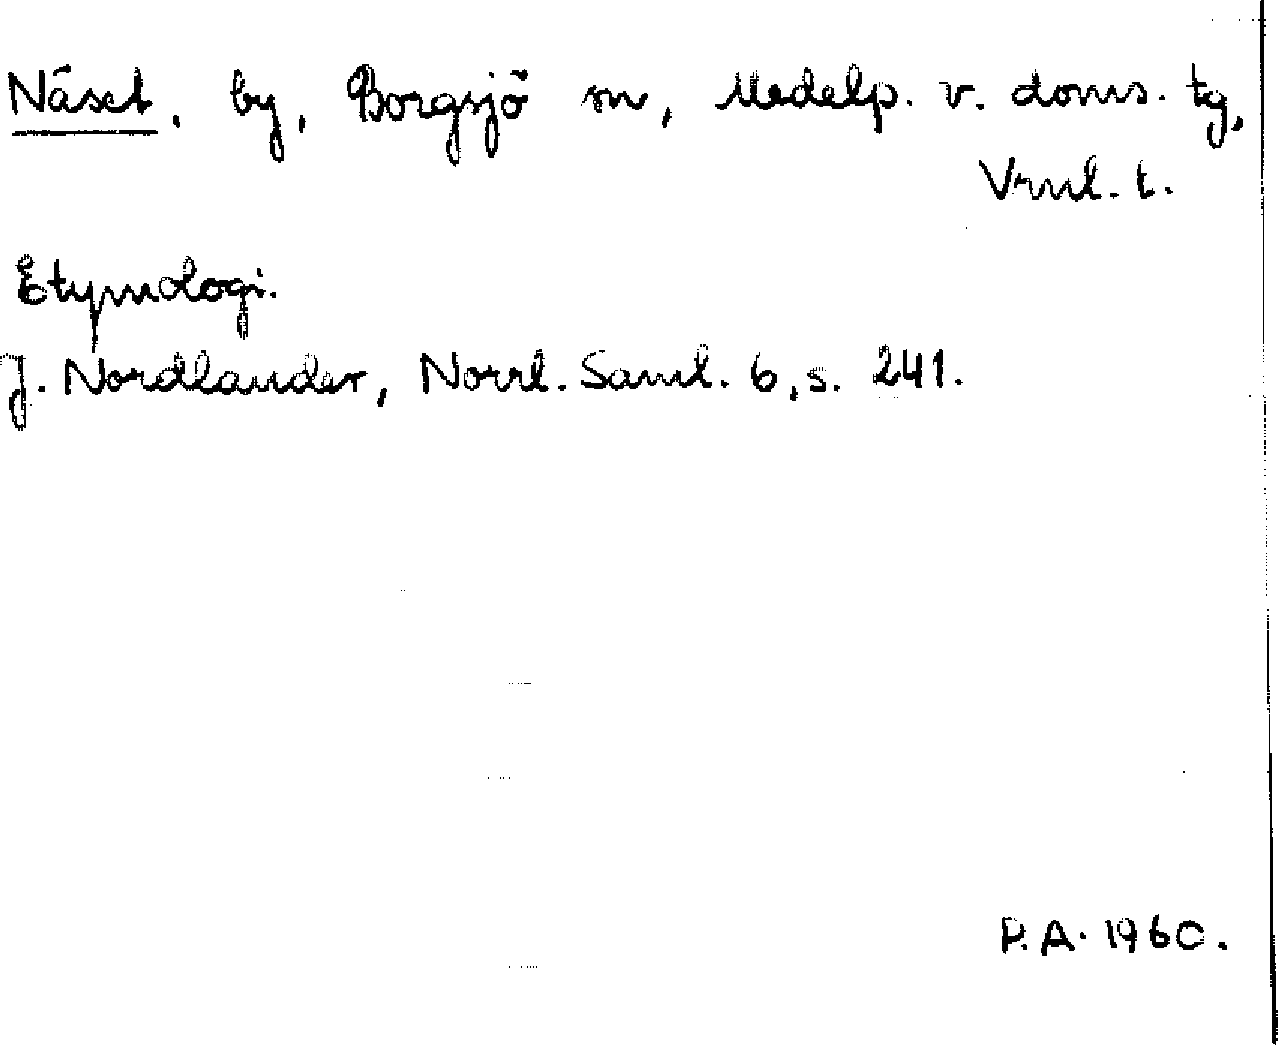 Näset, by, Borgsjö sn, Medelp. v. doms. tg,
Vrml. t.
Etymologi.
J. Nordlander, Norrl. Saml. 6, s. 241.
P.A. 1960.